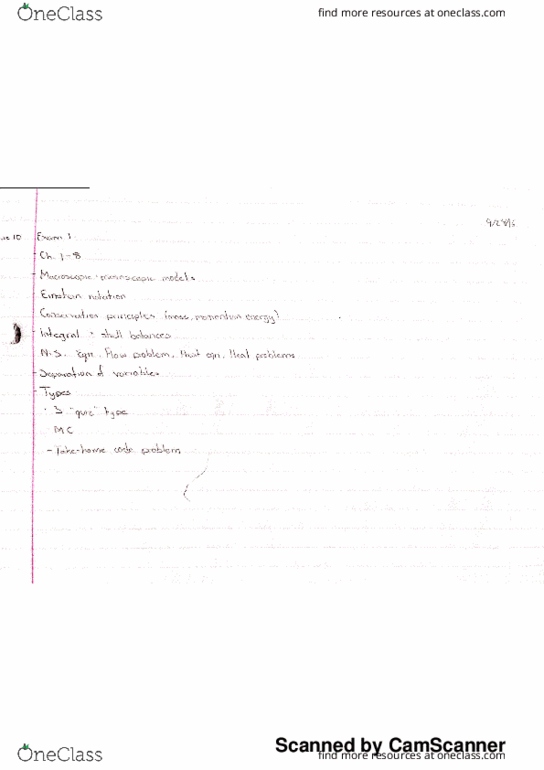 OneClass
find more resources at oneclass.com
9/28/16
10 Exam 1
- Ch. 1-8
- Macroscopic models
- Einstein notation
- Conservation principles (mass, momentum, energy)
- Integral + shell balances
- N.S. Eqn, Flow problem, Heat eqn, Heat problems
- Separation of variables
- Types
· 3 "quiz" type
MC
- Take-home code problem
Scanned by CamScanner
OneClass
find more resources at oneclass.com